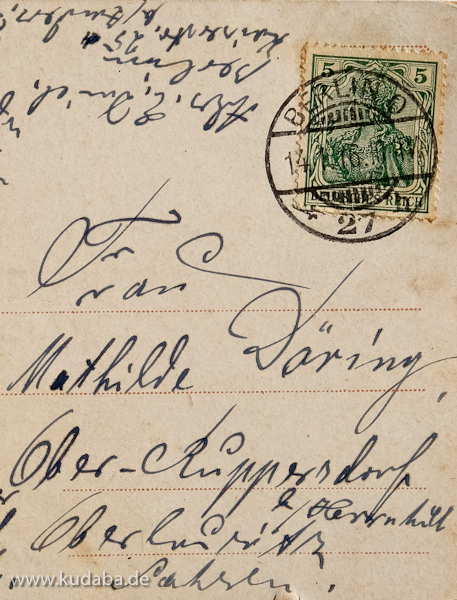 Berlin
5 5
BERLIN O
27
DEUTSCHES REICH
Frau
Mathilde Döring,
Ober-Ruppersdorf
b/Herrnhut
Oberlausitz
Sachsen.
www.kudaba.de